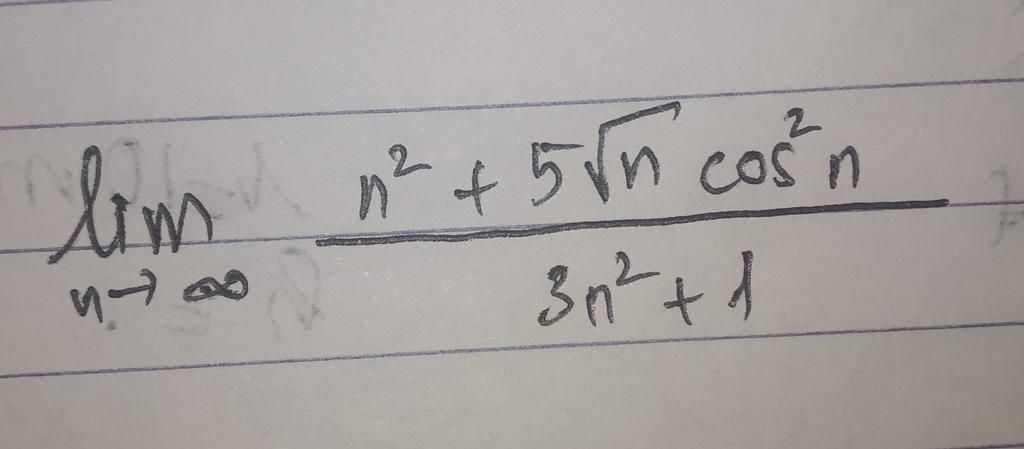 lim n→∞ (n² + 5√n cos² n) / (3n² + 1)